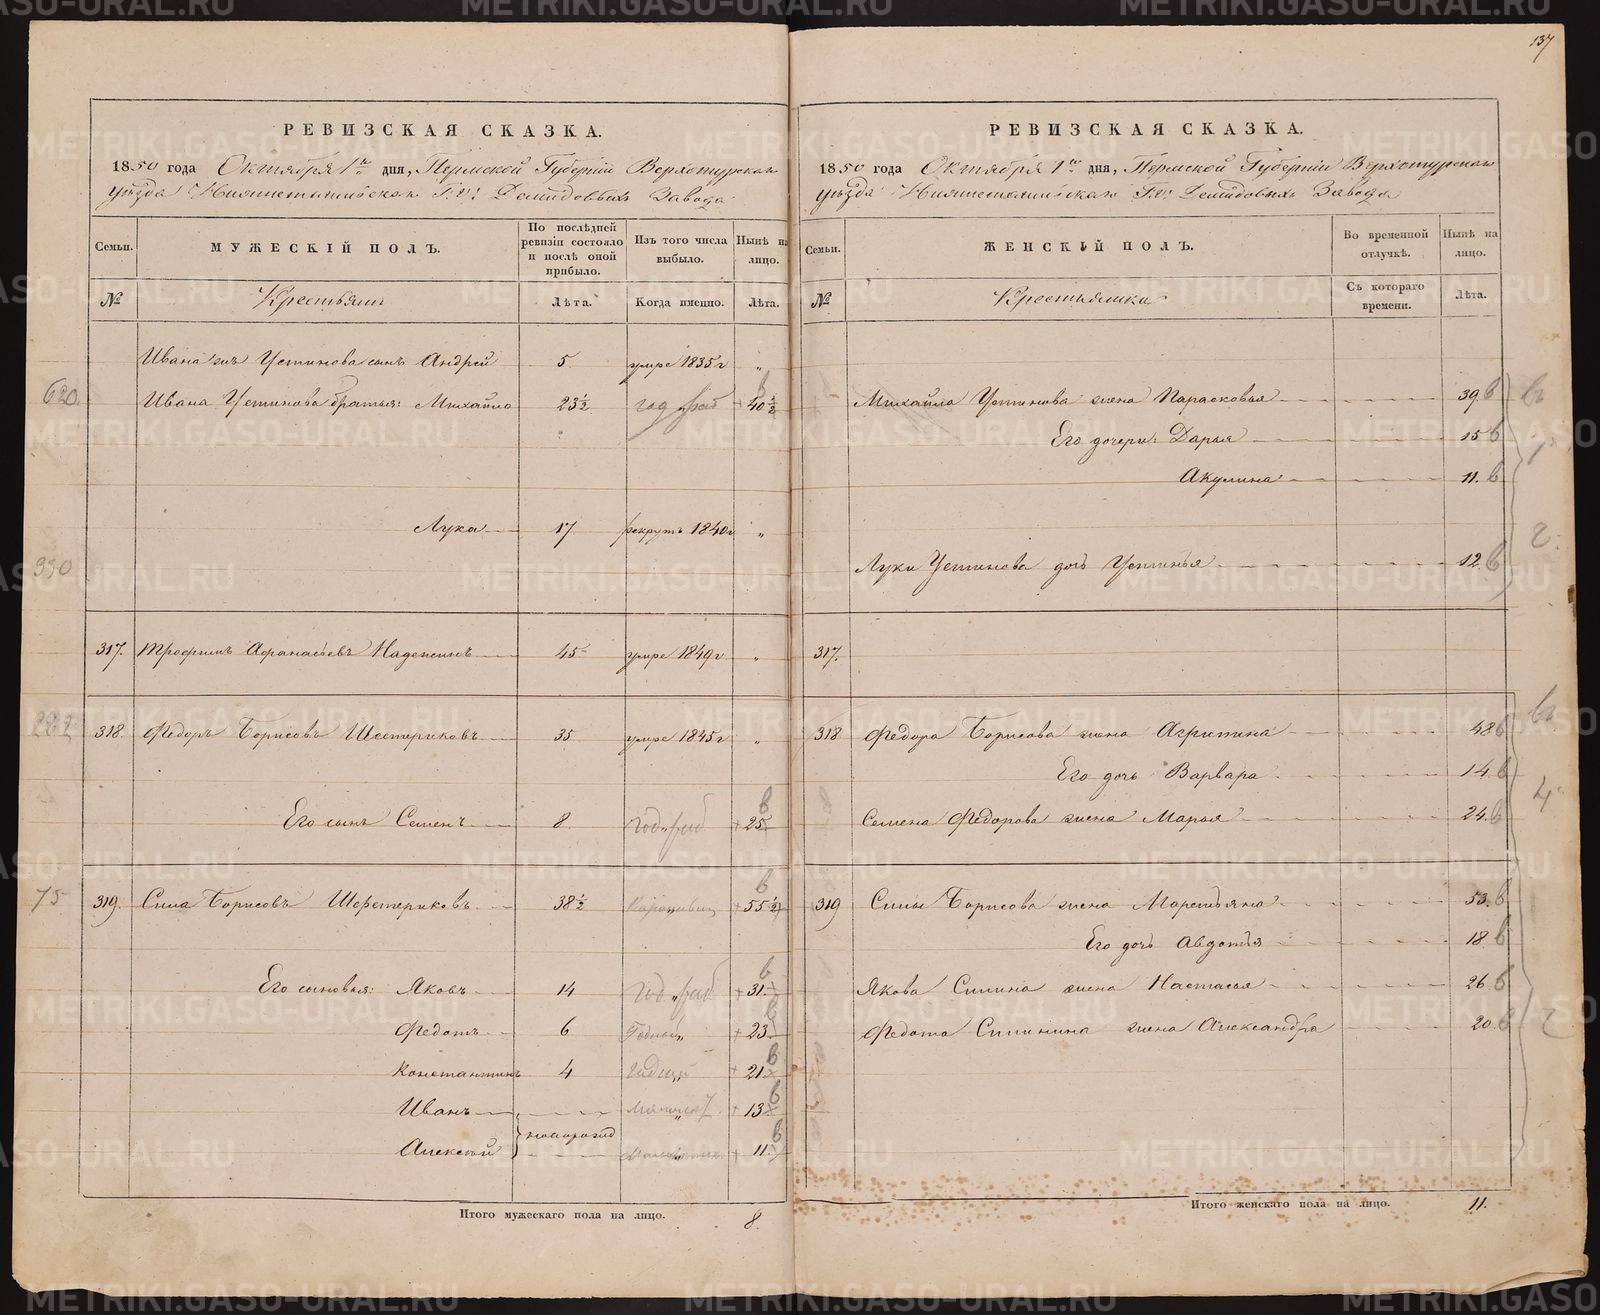 137
РЕВИЗСКАЯ СКАЗКА.
1850 года Октября 1го дня, Пермской Губернiи Верхотурскаго
уѣзда Нижнетагильскаго Г.г. Демидовыхъ Завода
Семьи. МУЖЕСКIЙ ПОЛЪ. По послѣдней ревизiи состояло и послѣ оной прибыло. Изъ того числа выбыло. Нынѣ на лицо.
№ Крестьянъ Лѣта. Когда именно. Лѣта.
Ивана жъ Устинова сынъ Андрей 5 умре 1835 г „
620. Ивана Устинова братья: Михайло 23½ год 40½
Лука 17 рекрутъ 1840 г „
330
317. Трофимъ Афанасьевъ Надежинъ 45 умре 1849 г „
282 318. Федоръ Борисовъ Шестериковъ 35 умре 1845 г „
Его сынъ Семенъ 8 год. раб + 25
75 319. Сила Борисовъ Шерстериковъ 38½ + 55½
Его сыновья: Яковъ 14 год. раб + 31
Федотъ 6 + 23
Константинъ 4 + 21
Иванъ + 13
новорожд
Алексей + 11
Итого мужескаго пола на лицо. 8.
РЕВИЗСКАЯ СКАЗКА.
1850 года Октября 1го дня, Пермской Губернiи Верхотурскаго
уѣзда Нижнетагильскаго Г.г. Демидовыхъ Завода
Семьи. ЖЕНСКIЙ ПОЛЪ. Во временной отлучкѣ. Нынѣ на лицо.
№ Крестьянска Съ котораго времени. Лѣта.
Михайла Устинова жена Парасковья 39 в
Его дочери: Дарья 15 в
Акулина 11. в
Луки Устинова дочь Устинья 12 в
317.
318 Федора Борисова жена Агрипина 48 в
Его дочь Варвара 14 в
Семена Федорова жена Марья 24. в
319 Силы Борисова жена Маремьяна 53. в
Его дочь Авдотья 18 в
Якова Силина жена Настасья 26 в
Федота Силинина жена Александра 20. в
Итого женскаго пола на лицо. 11.
METRIKI.GASO-URAL.RU